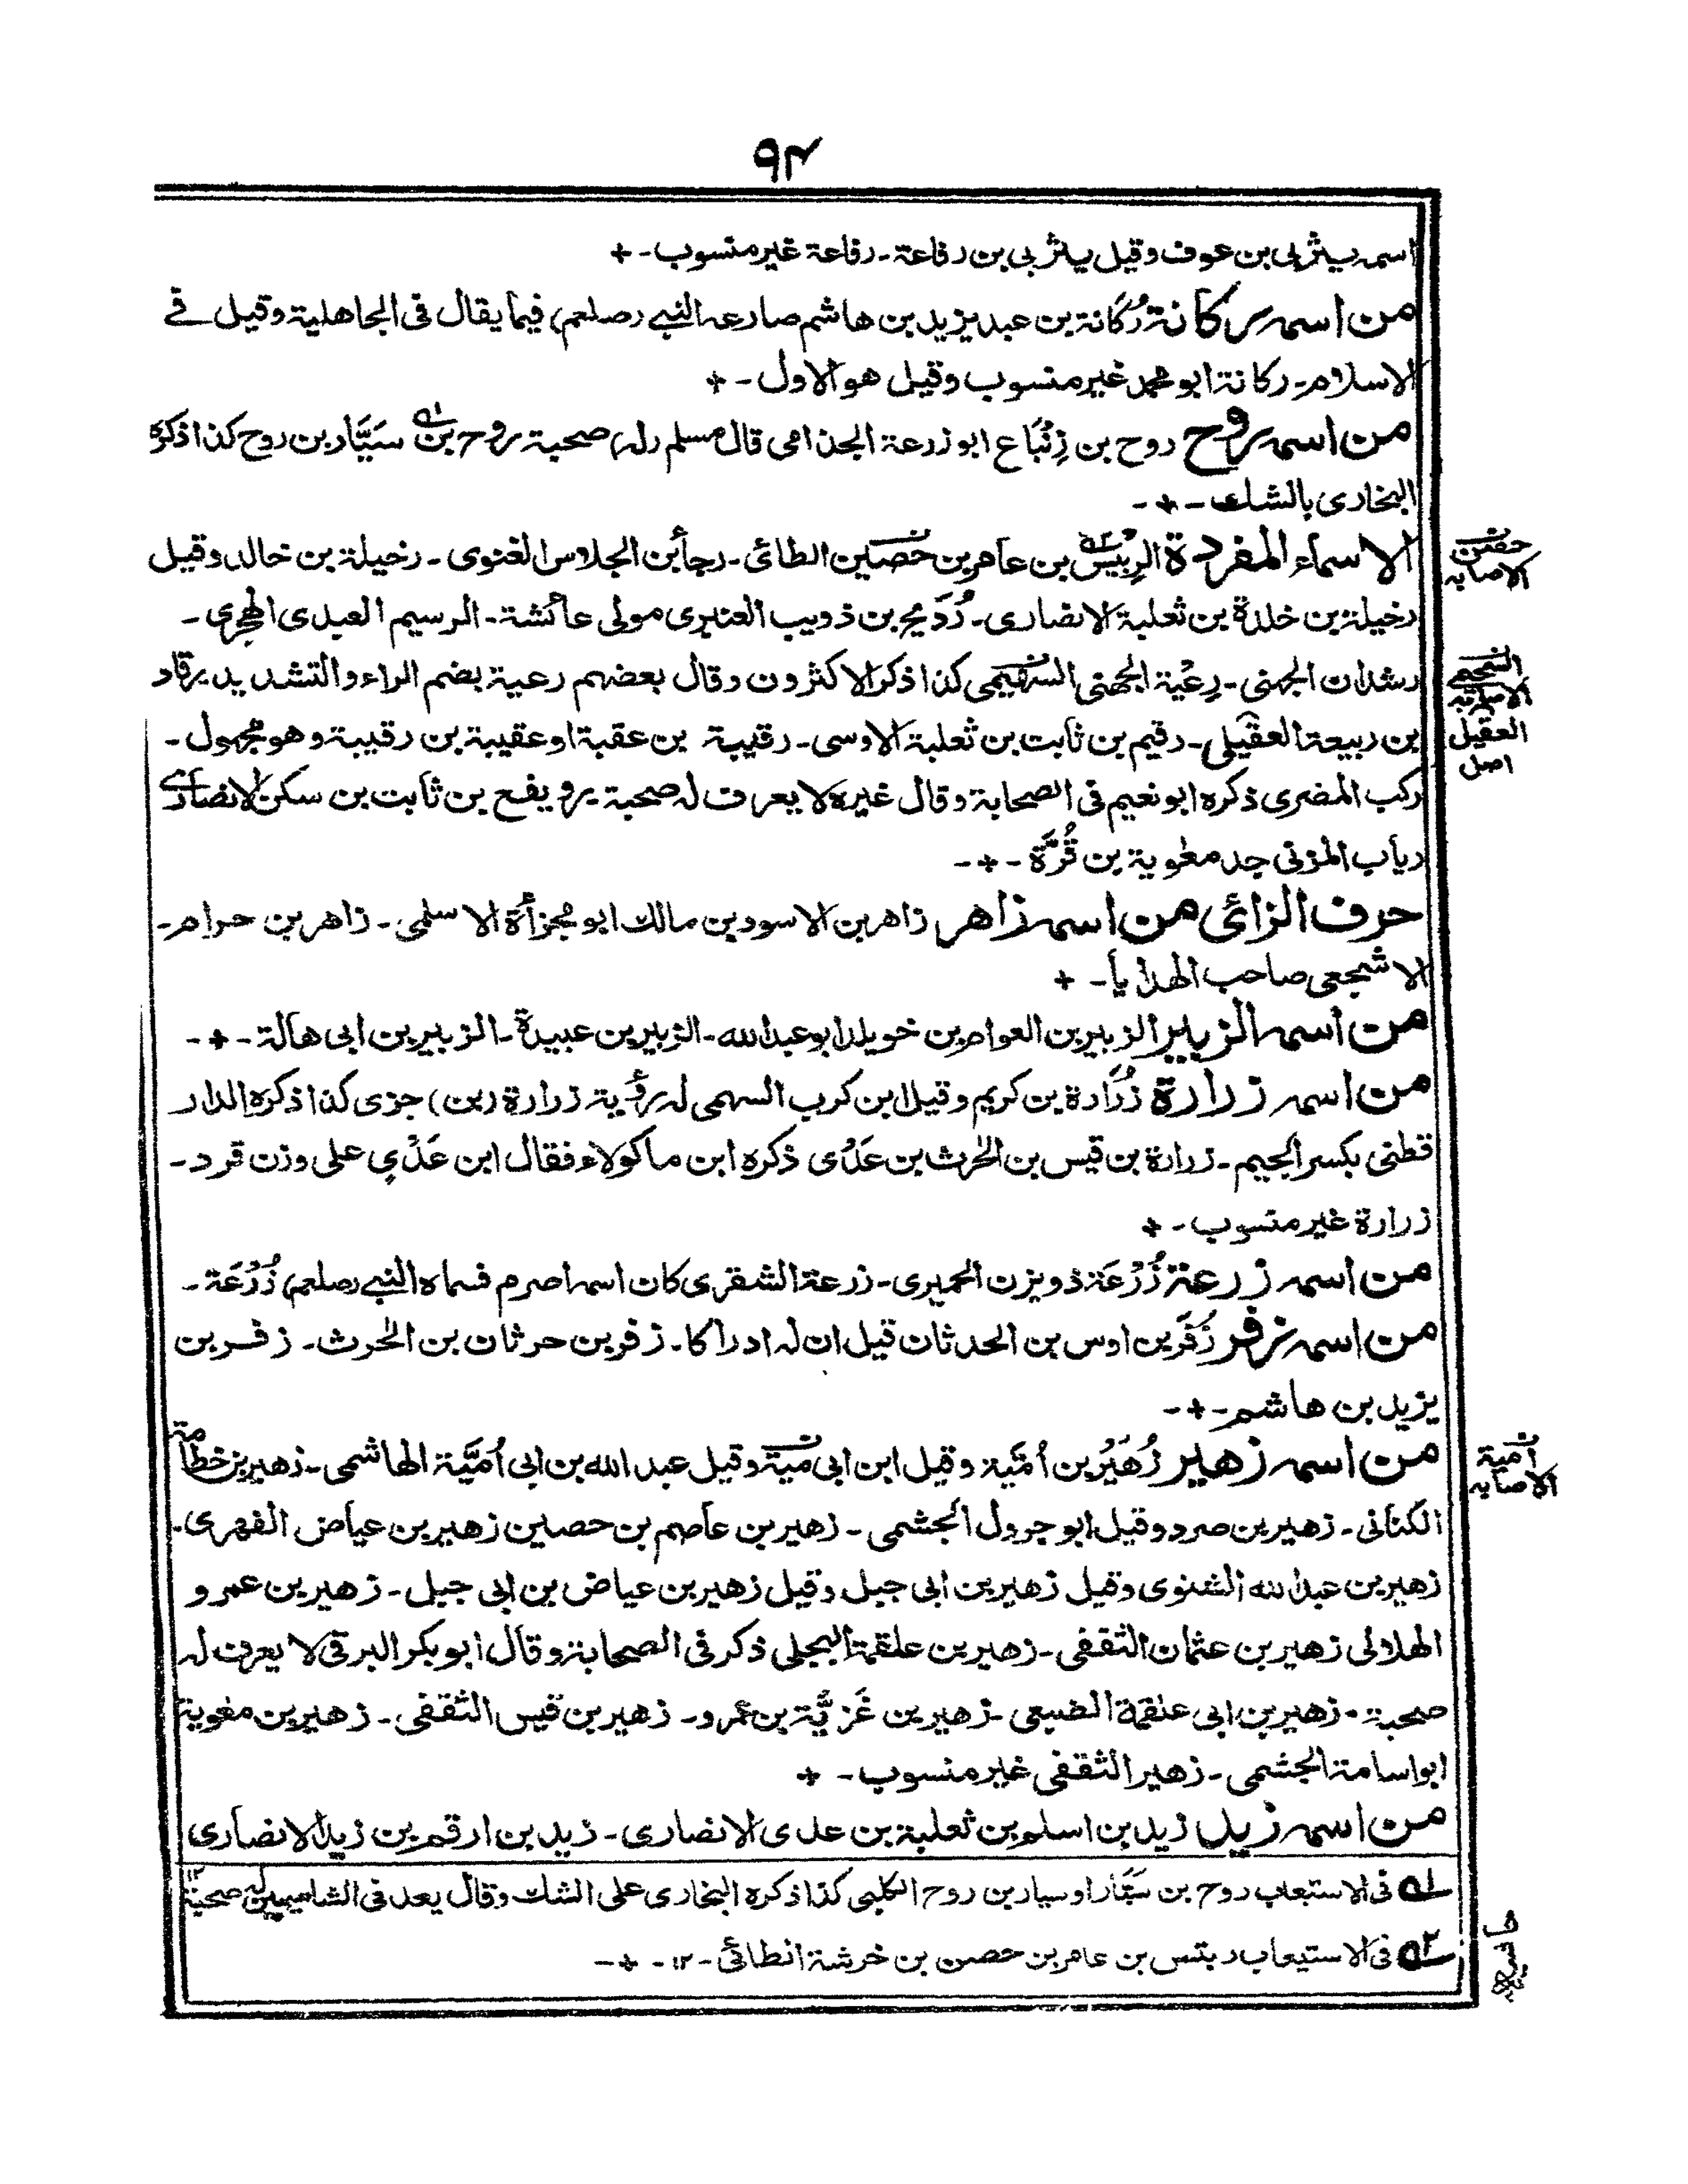 ۹۴
اسمہ یثربی بن عوف وقیل یثربی بن رفاعة۔ رفاعة غیر منسوب۔ +
من اسمہ رکانة رُکَانة بن عبد یزید بن هاشم صارعہ النبی (صلعم) فیما یقال فی الجاهلیة وقیل فے
الاسلام۔ رکانة ابو محمد غیر منسوب وقیل هو الاول۔ +
من اسمہ روح روح بن زِنْبَاع ابو زرعة الجذامی قال مسلم (لہ) صحبة روح بن سَیَّار بن روح کذا ذکرہ
البخاری بالشک - + -
الاسماء المفردة الرِبیس بن عامر بن حصین الطائی۔ رجأ بن الجلاس الغنوی۔ رخیلة بن خالد وقیل
رخیلة بن خلدة بن ثعلبة الانصاری۔ رُدَیح بن ذویب العنبری مولی عائشة۔ الرسیم العبدی الهجری۔
رشدان الجهنی۔ رِعْیة الجهنی السحیمی کذا ذکر الاکثرون وقال بعضهم رعیة بضم الراء والتشدید رقاد
بن ربیعة العقیلی۔ رقیم بن ثابت بن ثعلبة الاوسی۔ رقیبة بن عقبة او عقیبة بن رقیبة وهو مجهول۔
رکب المضری ذکرہ ابو نعیم فی الصحابة وقال غیرہ لا یعرف لہ صحبة رویفع بن ثابت بن سکن الانصاری
ریأب المزنی جد معٰویة بن قُرَّة - + -
حرف الزائی من اسمہ زاهر زاهر بن الاسود بن مالک ابو مجزأة الاسلمی۔ زاهر بن حرام۔
الاشجعی صاحب الهدایا۔ +
من اسمہ الزبیر الزبیر بن العوام بن خویلد ابو عبد الله۔ الزبیر بن عبیدة۔ الزبیر بن ابی هالة - + -
من اسمہ زرارة زُرَارة بن کریم وقیل ابن کرب السهمی لہ رؤیة زرارة (بن) جزی کذا ذکرہ الدار
قطنی بکسر الجیم۔ زرارة بن قیس بن الحٰرث بن عَدْی ذکرہ ابن ماکولاء فقال ابن عَدْیٍ علی وزن قرد۔
زرارة غیر منسوب۔ +
من اسمہ زرعة زُرْعَة ذویزن الحمیری۔ زرعة الشقری کان اسمہ اصرم فسماہ النبی (صلعم) زُرْعَة۔
من اسمہ زفر زُفَر بن اوس بن الحدثان قیل ان لہ ادراکا۔ زفر بن حرثان بن الحٰرث۔ زفر بن
یزید بن هاشم - + -
من اسمہ زهیر زُهَیْر بن اُمَیة وقیل ابن ابی میة وقیل عبد الله بن ابی اُمَیَّة الهاشمی۔ زهیر بن خطامة
الکنانی۔ زهیر بن صرد وقیل ابو جرول الجشمی۔ زهیر بن عاصم بن حصین زهیر بن عیاض الفهری۔
زهیر بن عبد الله الشنوی وقیل زهیر بن ابی جبل وقیل زهیر بن عیاض بن ابی جبل۔ زهیر بن عمرو
الهلالی زهیر بن عثمان الثقفی۔ زهیر بن علقمة البجلی ذکر فی الصحابة وقال ابو بکر البرقی لا یعرف لہ
صحبة۔ زهیر بن ابی علقمة الضبعی۔ زهیر بن غَزِیَّة بن عمرو۔ زهیر بن قیس الثقفی۔ زهیر بن معٰویة
ابو اسامة الجشمی۔ زهیر الثقفی غیر منسوب۔ +
من اسمہ زید زید بن اسلم بن ثعلبة بن عدی الانصاری۔ زید بن ارقم بن زید الانصاری
۱ فی الاستیعاب روح بن سَیَّار او سیار بن روح الکلبی کذا ذکرہ البخاری علی الشک وقال یعد فی الشامیین لہ صحبة ۱۲
۲ فی الاستیعاب ربتس بن عامر بن حصن بن خرشة الطائی - ۱۲ - + -
حصن
الاصابہ
السحیمی
الاصابہ
العقیل
اصل
اُمیة
الاصابہ